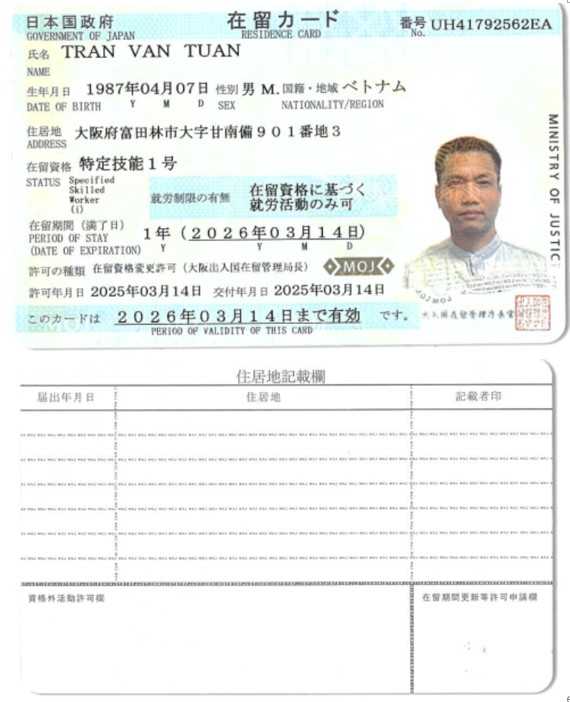 日本国政府 在留カード 番号 UH41792562EA
GOVERNMENT OF JAPAN RESIDENCE CARD No.
氏名 TRAN VAN TUAN
NAME
生年月日 1987年04月07日 性別 男 M. 国籍・地域 ベトナム
DATE OF BIRTH Y M D SEX NATIONALITY/REGION
住居地 大阪府富田林市大字甘南備901番地3
ADDRESS
在留資格 特定技能1号
STATUS Specified
Skilled
Worker
(i)
就労制限の有無 在留資格に基づく
就労活動のみ可
在留期間(満了日) 1年(2026年03月14日)
PERIOD OF STAY Y Y M D
(DATE OF EXPIRATION)
許可の種類 在留資格変更許可(大阪出入国在留管理局長)
MOJ
許可年月日 2025年03月14日 交付年月日 2025年03月14日
このカードは 2026年03月14日まで有効 です。
PERIOD OF VALIDITY OF THIS CARD
MINISTRY OF JUSTICE
MOJ MOJ
住居地記載欄
届出年月日 住居地 記載者印
資格外活動許可欄 在留期間更新等許可申請欄